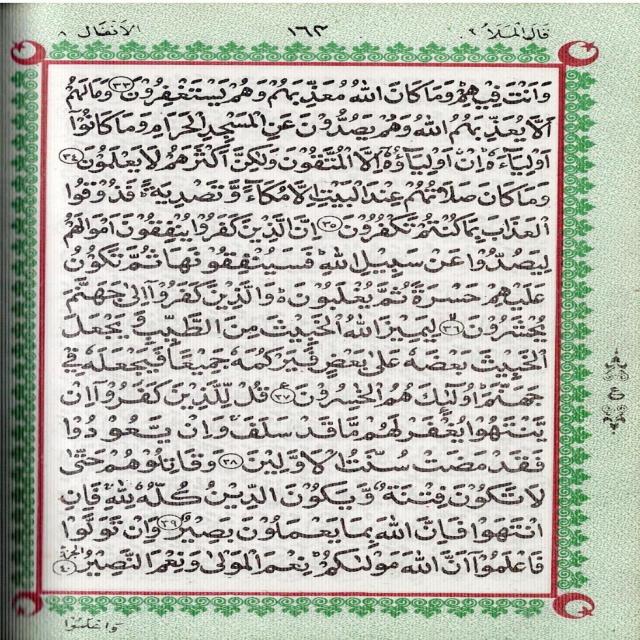 قال الملأ ٩ ١٦٣ الأنفال ٨
وَأَنْتَ فِيهِمْ وَمَا كَانَ اللهُ مُعَذِّبَهُمْ وَهُمْ يَسْتَغْفِرُونَ ﴿٣٣﴾ وَمَا لَهُمْ
أَلَّا يُعَذِّبَهُمُ اللهُ وَهُمْ يَصُدُّونَ عَنِ الْمَسْجِدِ الْحَرَامِ وَمَا كَانُوا
أَوْلِيَاءَهُ إِنْ أَوْلِيَاؤُهُ إِلَّا الْمُتَّقُونَ وَلَكِنَّ أَكْثَرَهُمْ لَا يَعْلَمُونَ ﴿٣٤﴾
وَمَا كَانَ صَلَاتُهُمْ عِنْدَ الْبَيْتِ إِلَّا مُكَاءً وَّتَصْدِيَةً فَذُوقُوا
الْعَذَابَ بِمَا كُنْتُمْ تَكْفُرُونَ ﴿٣٥﴾ إِنَّ الَّذِينَ كَفَرُوا يُنْفِقُونَ أَمْوَالَهُمْ
لِيَصُدُّوا عَنْ سَبِيلِ اللهِ فَسَيُنْفِقُونَهَا ثُمَّ تَكُونُ
عَلَيْهِمْ حَسْرَةً ثُمَّ يُغْلَبُونَ وَالَّذِينَ كَفَرُوا إِلَى جَهَنَّمَ
يُحْشَرُونَ ﴿٣٦﴾ لِيَمِيزَ اللهُ الْخَبِيثَ مِنَ الطَّيِّبِ وَيَجْعَلَ
الْخَبِيثَ بَعْضَهُ عَلَى بَعْضٍ فَيَرْكُمَهُ جَمِيعًا فَيَجْعَلَهُ فِي
جَهَنَّمَ أُولَئِكَ هُمُ الْخٰسِرُونَ ﴿٣٧﴾ قُلْ لِلَّذِينَ كَفَرُوا إِنْ
يَّنْتَهُوا يُغْفَرْ لَهُمْ مَّا قَدْ سَلَفَ وَإِنْ يَّعُودُوا
فَقَدْ مَضَتْ سُنَّتُ الْأَوَّلِينَ ﴿٣٨﴾ وَقَاتِلُوهُمْ حَتَّى
لَا تَكُونَ فِتْنَةٌ وَّيَكُونَ الدِّينُ كُلُّهُ لِلّٰهِ فَإِنِ
انْتَهَوْا فَإِنَّ اللهَ بِمَا يَعْمَلُونَ بَصِيرٌ ﴿٣٩﴾ وَإِنْ تَوَلَّوْا
فَاعْلَمُوا أَنَّ اللهَ مَوْلٰىكُمْ نِعْمَ الْمَوْلَى وَنِعْمَ النَّصِيرُ ﴿٤٠﴾
واعلموا